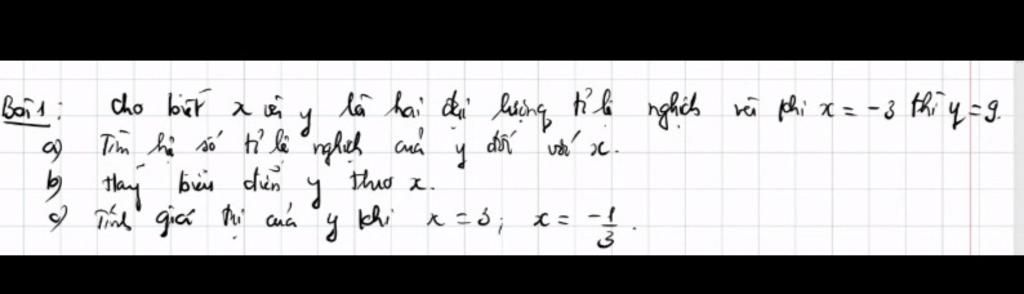 Bài 1: Cho biết x và y là hai đại lượng tỉ lệ nghịch và khi x = -3 thì y = 9.
a) Tìm hệ số tỉ lệ nghịch của y đối với x.
b) Hãy biểu diễn y theo x.
c) Tính giá trị của y khi x = 3; x = -1/3.